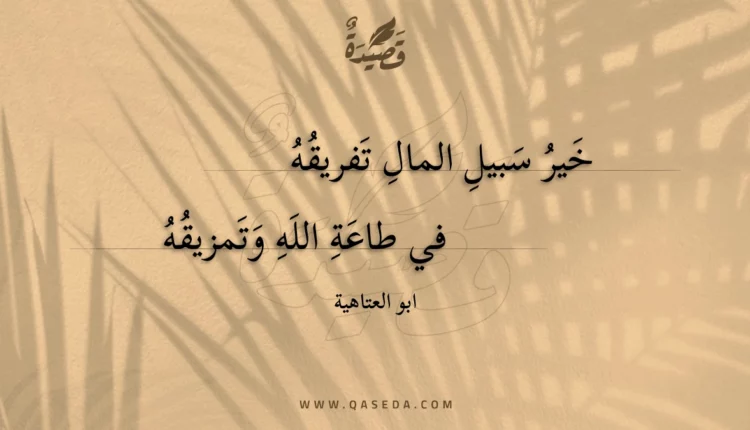 قَصِيْدَةٌ
خَيرُ سَبيلِ المالِ تَفريقُهُ
في طاعَةِ اللَهِ وَتَمزيقُهُ
ابو العتاهية
WWW.QASEDA.COM